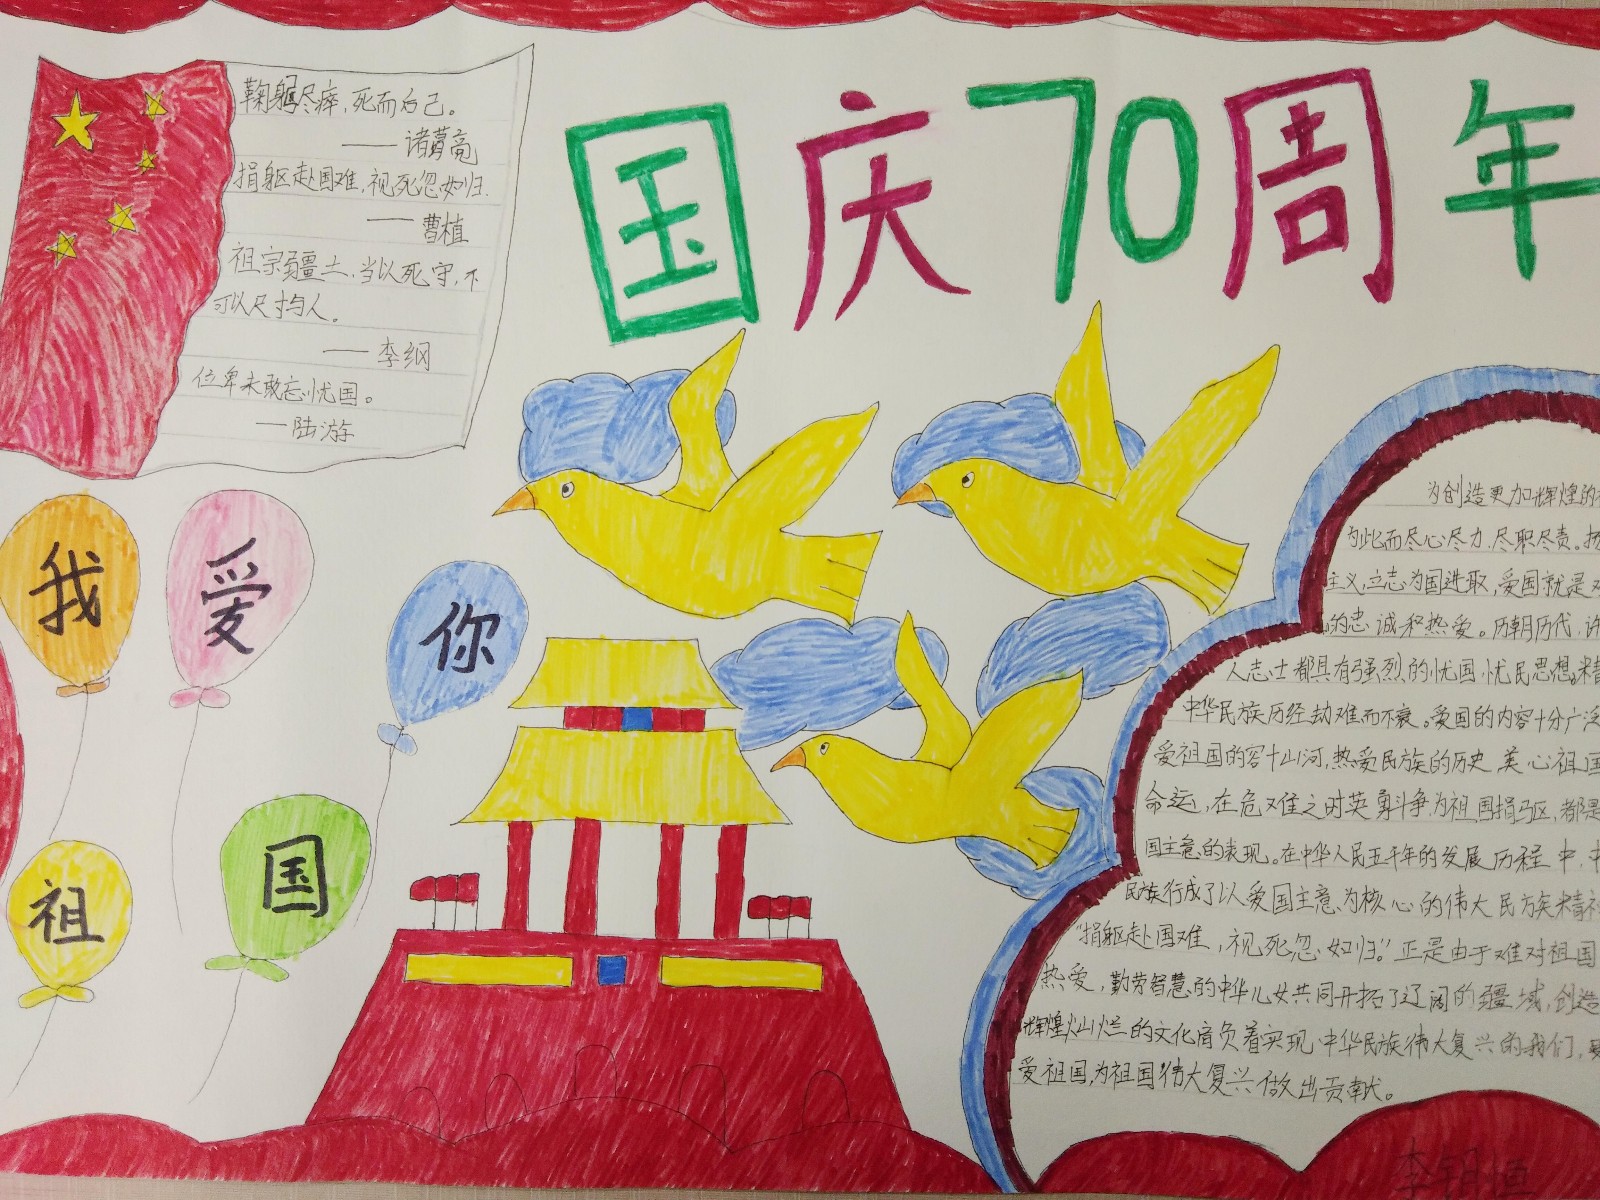 国庆70周年
鞠躬尽瘁,死而后己。
——诸葛亮
捐躯赴国难,视死忽如归.
——曹植
祖宗疆土,当以死守,不
可以尺寸与人。
——李纲
位卑未敢忘忧国。
—陆游
我爱你
祖国
为创造更加辉煌的
为此而尽心尽力,尽职尽责。
主义,立志为国进取,爱国就是
的忠诚和热爱。历朝历代,许
人志士都具有强烈的忧国,忧民思想,精
中华民族历经劫难而不衰。爱国的内容十分广泛
爱祖国的容十山河,热爱民族的历史 美心祖国
命运,在危难之时英勇斗争,为祖国捐马区,都是
国主意的表现。在中华人民五千年的发展历程中,中
民族行成了以爱国主意为核心的伟大民方族精神
“捐躯赴国难,视死忽如归”.正是由于难对祖国
热爱,勤劳智慧的中华儿女共同开拓了辽阔的疆域,创造
辉煌灿烂的文化肩负着实现中华民族伟大复兴的我们,要
爱祖国,为祖国伟大复兴做出贡献。